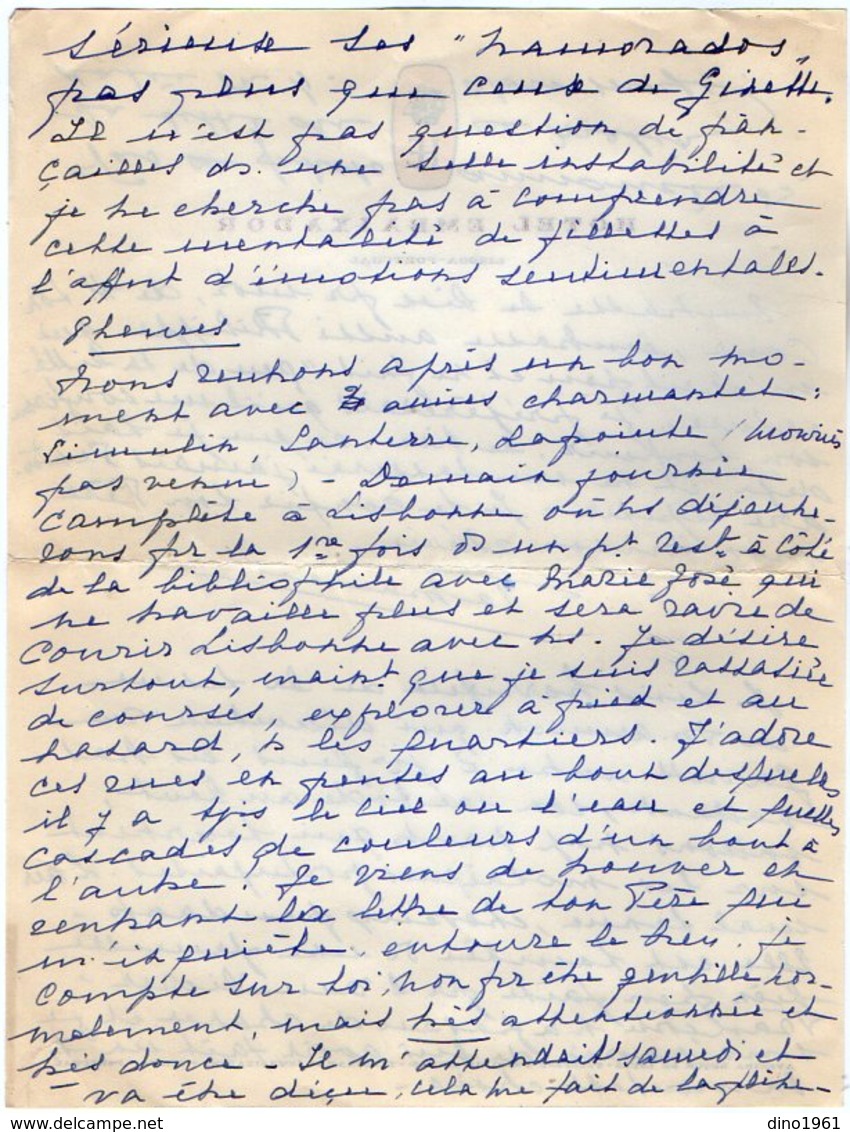 sérieuse ses "namorados"
pas plus que ceux de Ginette.
Il n'est pas question de fian-
çailles ds. une telle instabilité et
je ne cherche pas à comprendre
cette mentalité de fillettes à
l'affut d'émotions sentimentales.
heures
nous rentrons après un bon mo-
ment avec 3 amies charmantes :
Lanterre, Lapointe
pas venue) - Demain journée
complète à Lisbonne où ns déjeune-
rons pr la 1re fois ds un pt. restt. à côté
de la bibliophile avec Marie José qui
ne travaille plus et sera ravie de
courir Lisbonne avec ns. Je désire
surtout, maint. que je suis rassasiée
de courses, explorer à pied et au
hasard, ts les quartiers. J'adore
ces rues en pentes au bout desquelles
il y a tjrs le ciel ou l'eau et quelles
cascades de couleurs d'un bout à
l'autre. Je viens de trouver en
rentrant la lettre de ton Père qui
m'inquiète. entoure le bien. je
compte sur toi, non pr être gentille nor-
malement, mais très attentionnée et
très douce - Il m'attendait samedi et
va être déçu, cela me fait de la peine -
HOTEL EMBAIXADOR
dino1961